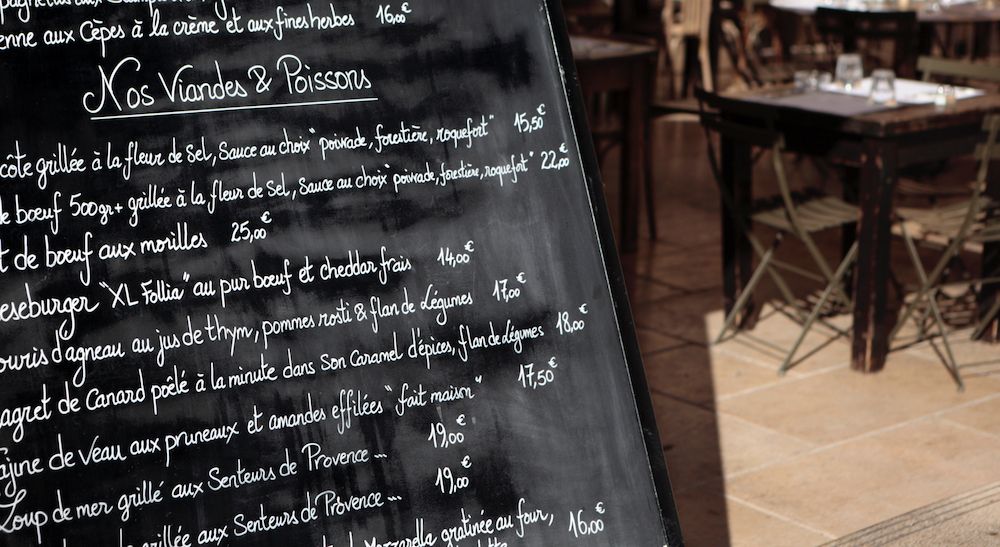 enne aux Cèpes à la crème et aux fines herbes 16,00€
Nos Viandes & Poissons
côte grillée à la fleur de Sel, Sauce au choix "poivrade, forestière, roquefort" 15,50€
de bœuf 500gr+ grillée à la fleur de Sel, Sauce au choix "poivrade, forestière, roquefort" 22,00€
t de bœuf aux morilles 25,00€
eseburger "XL Follia" au pur bœuf et cheddar frais 14,00€
ouris d'agneau au jus de thym, pommes rosti & flan de Légumes 17,00€
agret de Canard poêlé à la minute dans Son Caramel d'épices, flan de Légumes 18,00€
ajine de Veau aux pruneaux et amandes effilées "fait maison" 17,50€
Loup de mer grillé aux Senteurs de Provence ... 19,00€
grillée aux Senteurs de Provence ... 19,00€
Mozzarella gratinée au four, 16,00€